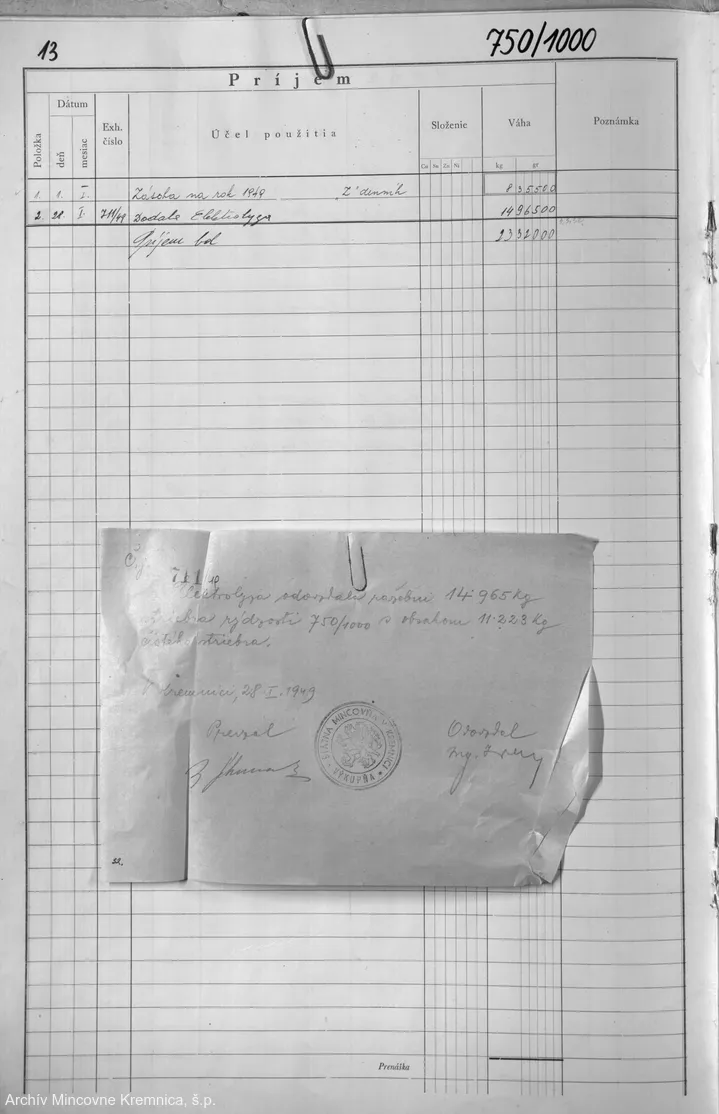 13
750/1000
Príjem
Položka
Dátum
deň
mesiac
Exh. číslo
Účel použitia
Složenie
Cu Sn Zn Ni
Váha
kg gr
Poznámka
1. 1. I. Zásoba na rok 1949 835500
2. 28. I. 711/49 Dodala Elektrolyza 1496500
Príjem bol 2332000
711
Elektrolyza odovzdala 14·965 kg
striebra rýdzosti 750/1000 s obsahom 11·223 kg
striebra.
V Kremnici, 28·I.1949
Prevzal
Odovzdal
Ing.
ŠTÁTNA MINCOVŇA V KREMNICI
VÝKUPŇA
22.
Prenáška
Archív Mincovne Kremnica, š.p.